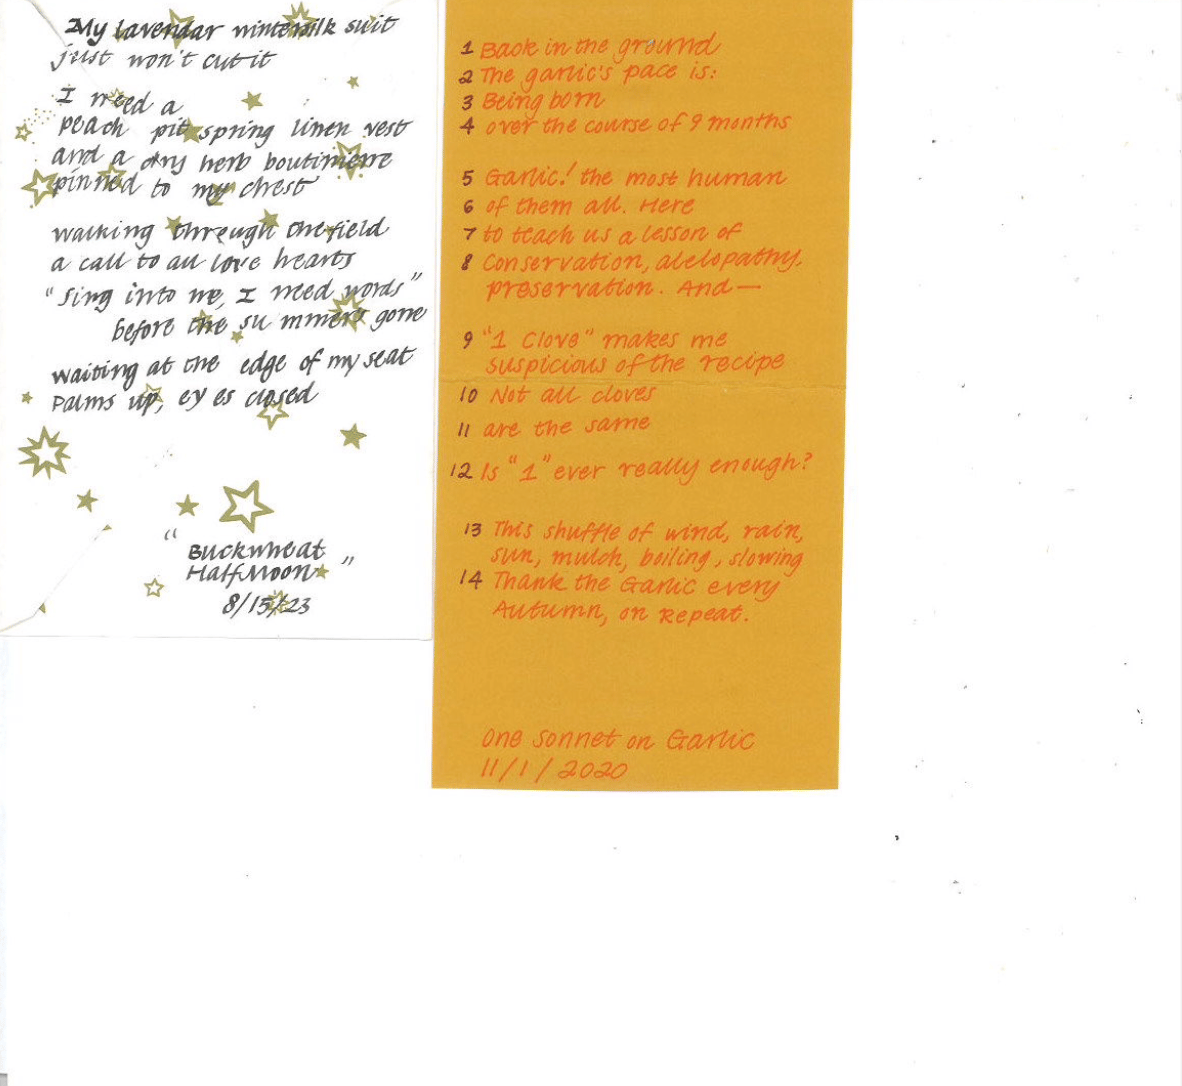 My lavendar wintersilk suit
just won't cut it
I need a
peach pit spring linen vest
and a dry herb boutinierre
pinned to my chest
walking through the field
a call to all love hearts
"sing into me, I need words"
before the summers gone
waiting at the edge of my seat
palms up, eyes closed
"
Buckwheat
Half Moon "
8/15/23
1 Back in the ground
2 The garlic's pace is:
3 Being born
4 over the course of 9 months
5 Garlic! the most human
6 of them all. Here
7 to teach us a lesson of
8 Conservation, alelopathy,
preservation. And—
9 "1 Clove" makes me
suspicious of the recipe
10 Not all cloves
11 are the same
12 Is "1" ever really enough?
13 This shuffle of wind, rain,
sun, mulch, boiling, slowing
14 Thank the Garlic every
Autumn, on Repeat.
One Sonnet on Garlic
11/1/2020